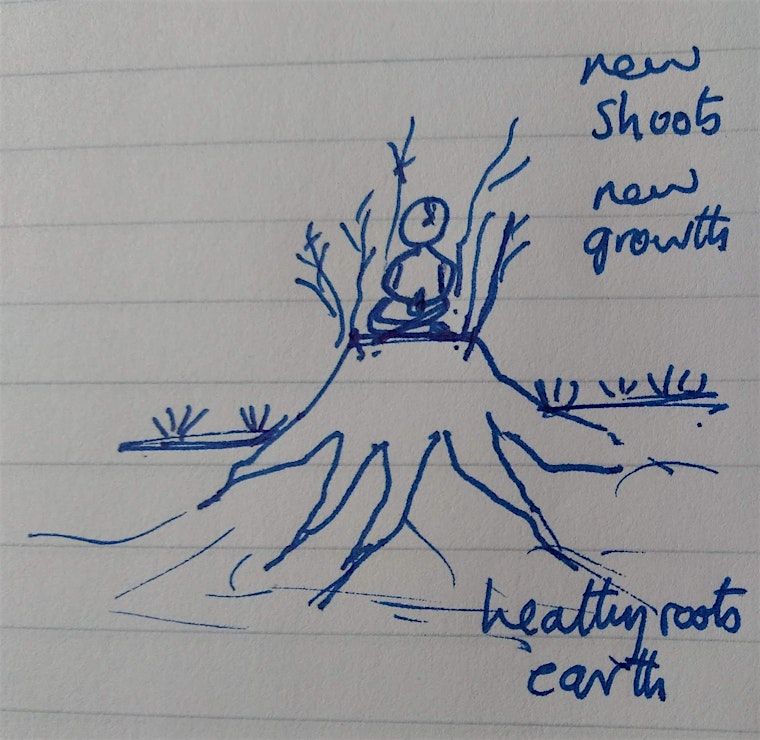 new
shoots
new
growth
healthy roots
earth